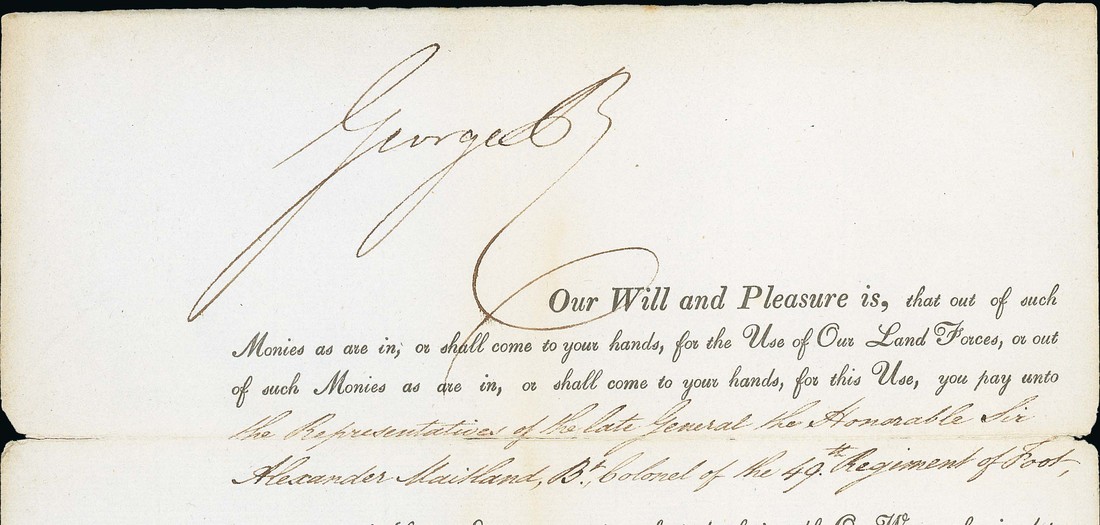 George R
Our Will and Pleasure is, that out of such
Monies as are in, or shall come to your hands, for the Use of Our Land Forces, or out
of such Monies as are in, or shall come to your hands, for this Use, you pay unto
the Representatives of the late General the Honorable Sir
Alexander Maitland, Bt, Colonel of the 49th Regiment of Foot,